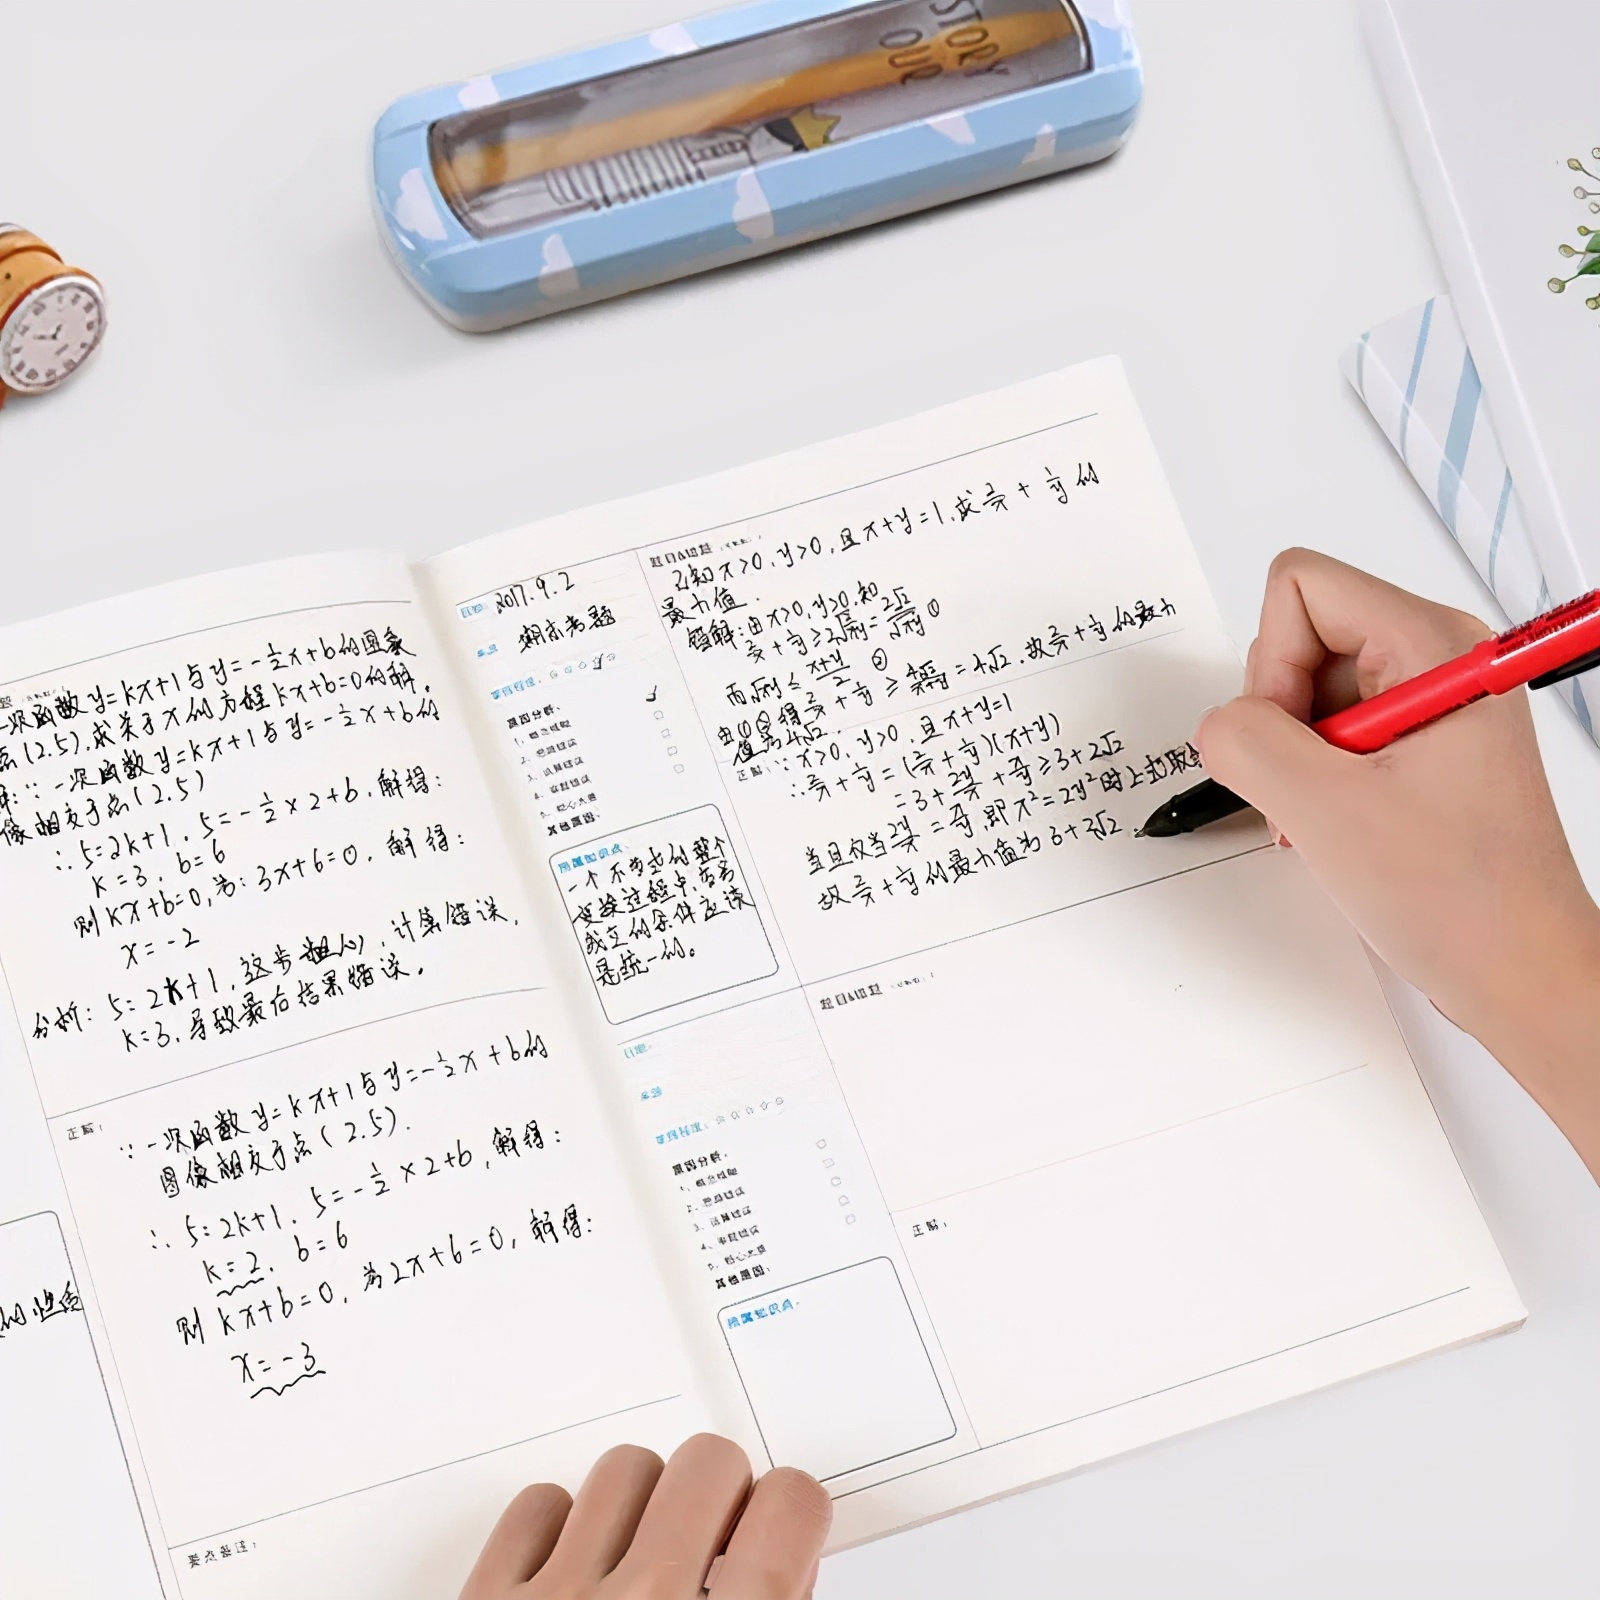 STORY
OUR
一次函数y=kx+1与y=-½x+b的图象
点(2.5),求关于x的方程kx+b=0的解.
解:∵一次函数y=kx+1与y=-½x+b的
像相交于点(2.5)
∴5=2k+1. 5=-½×2+b.解得:
k=3. b=6
则kx+b=0,为:3x+6=0. 解得:
x=-2
分析:5=2k+1.这步粗心,计算错误,
k=3.导致最后结果错误.
正解:
∵一次函数y=kx+1与y=-½x+b的
图像相交于点(2.5).
∴5=2k+1. 5=-½×2+b,解得:
k=2. b=6
则kx+b=0,为2x+6=0,解得:
x=-3
要点备注:
的性质
日期:
2017.9.2
来源
期末考题
掌握程度:
原因分析:
1、概念模糊
2、思路错误
3、运算错误
4、审题错误
5、粗心大意
其他原因:
所属知识点
一个不等式的整个
变换过程中,等号
成立的条件应该
是统一的。
题目&错题
已知x>0,y>0,且x+y=1,求2/x+1/y的
最小值.
错解:由x>0,y>0,知
2/x+1/y≥2√(2/xy)=2√2/√xy ①
而√xy≤(x+y)/2 ②
由①②得2/x+1/y≥ =4√2.故2/x+1/y的最小
值为4√2.
正解:∵x>0,y>0,且x+y=1
∴2/x+1/y=(2/x+1/y)(x+y)
=3+2y/x+x/y≥3+2√2
当且仅当2y/x=x/y,即x²=2y²时上式取
故2/x+1/y的最小值为3+2√2.
日期:
来源
掌握程度:
原因分析:
1、概念模糊
2、思路错误
3、运算错误
4、审题错误
5、粗心大意
其他原因:
所属知识点:
题目&错题
正解: